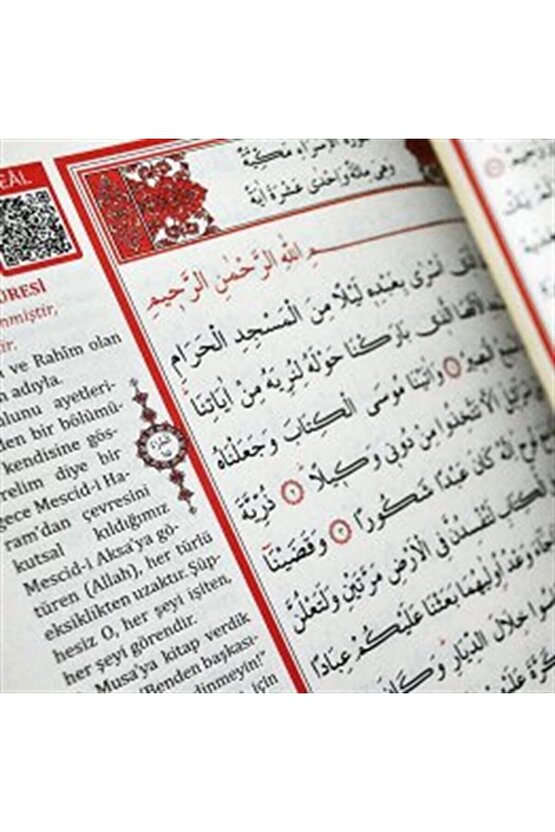 EÂL
ÛRESİ
nmiştir,
ir.
ve Rahîm olan
adıyla.
ulunu ayetleri-
den bir bölümü-
kendisine gös-
relim diye bir
gece Mescid-i Ha-
ram'dan çevresini
kutsal kıldığımız
Mescid-i Aksa'ya gö-
türen (Allah), her türlü
eksiklikten uzaktır. Şüp-
hesiz O, her şeyi işiten,
her şeyi görendir.
Musa'ya kitap verdik
"Benden başkası-
dinmeyin!"
için
سُورَةُ الْإِسْرَاءِ مَكِّيَّةٌ
وَهِيَ مِائَةٌ وَاِحْدٰى عَشْرَةَ اٰيَةً
اللّٰهِ الرَّحْمٰنِ الرَّحٖيمِ
اَسْرٰى بِعَبْدِهٖ لَيْلًا مِنَ الْمَسْجِدِ الْحَرَامِ
الْاَقْصَا الَّذٖى بَارَكْنَا حَوْلَهُ لِنُرِيَهُ مِنْ اٰيَاتِنَا
السَّمٖيعُ الْبَصٖيرُ ١ وَاٰتَيْنَا مُوسَى الْكِتَابَ وَجَعَلْنَاهُ
اَلَّا تَتَّخِذُوا مِنْ دُونٖى وَكٖيلًا ٢ ذُرِّيَّةَ
نُوحٍ اِنَّهُ كَانَ عَبْدًا شَكُورًا ٣ وَقَضَيْنَا
الْكِتَابِ لَتُفْسِدُنَّ فِى الْاَرْضِ مَرَّتَيْنِ وَلَتَعْلُنَّ
جَاءَ وَعْدُ اُولٰيهُمَا بَعَثْنَا عَلَيْكُمْ عِبَادًا
خِلَالَ الدِّيَارِ وَكَانَ
الْكَرَّةَ عَلَيْهِمْ